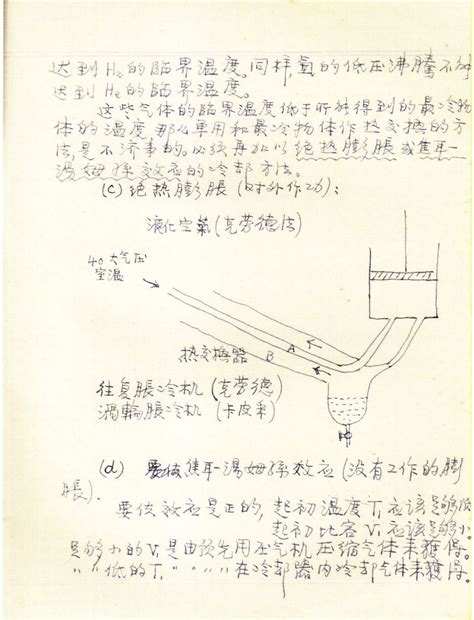 达到 H₂ 的臨界温度。同样，氢的低压沸騰不能
达到 He 的臨界温度。
这些气体的臨界温度低于所能得到的最冷物
体的温度，那么单用和最冷物体作热交換的方
法是不济事的。必须再加以绝热膨脹或焦耳—
湯姆孫效应的冷却方法。
(c) 绝热膨脹 (对外作功)：
液化空氣 (克劳德法)
40 大气压
室温
热交換器 B A
往复脹冷机 (克劳德)
渦輪脹冷机 (卡皮查)
(d) 焦耳—湯姆孫效应 (没有工作的膨
脹)。
要使效应是正的，起初温度 T₁ 应该足够低
起初比容 V₁ 应该足够小。
足够小的 V₁ 是由预先用压气机压缩气体来獲得。
〃 〃 低的 T₁ 〃 〃 〃 〃 在冷却器内冷却气体来獲得。